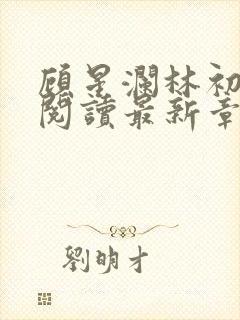 顾星瀾林初
閱讀最新章
劉明才